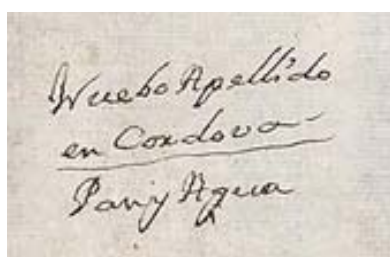 Nuebo Apellido
en Cordova
Pan y Agua